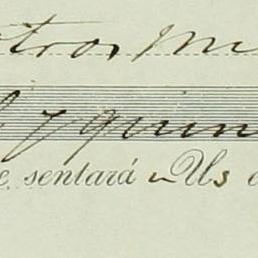 tros mi
y quin
e, sentará Us